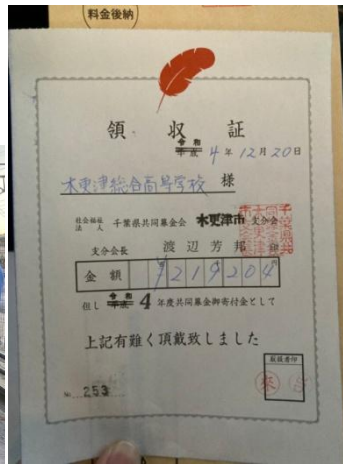 料金後納
領収証
令和
平成 4年12月20日
木更津総合高等学校 様
社会福祉法人 千葉県共同募金会 木更津市 支分会
支分会長 渡辺芳邦 印
金額 ¥219204
但し 令和 平成 4 年度共同募金御寄付金として
上記有難く頂戴致しました
取扱者印
No 253